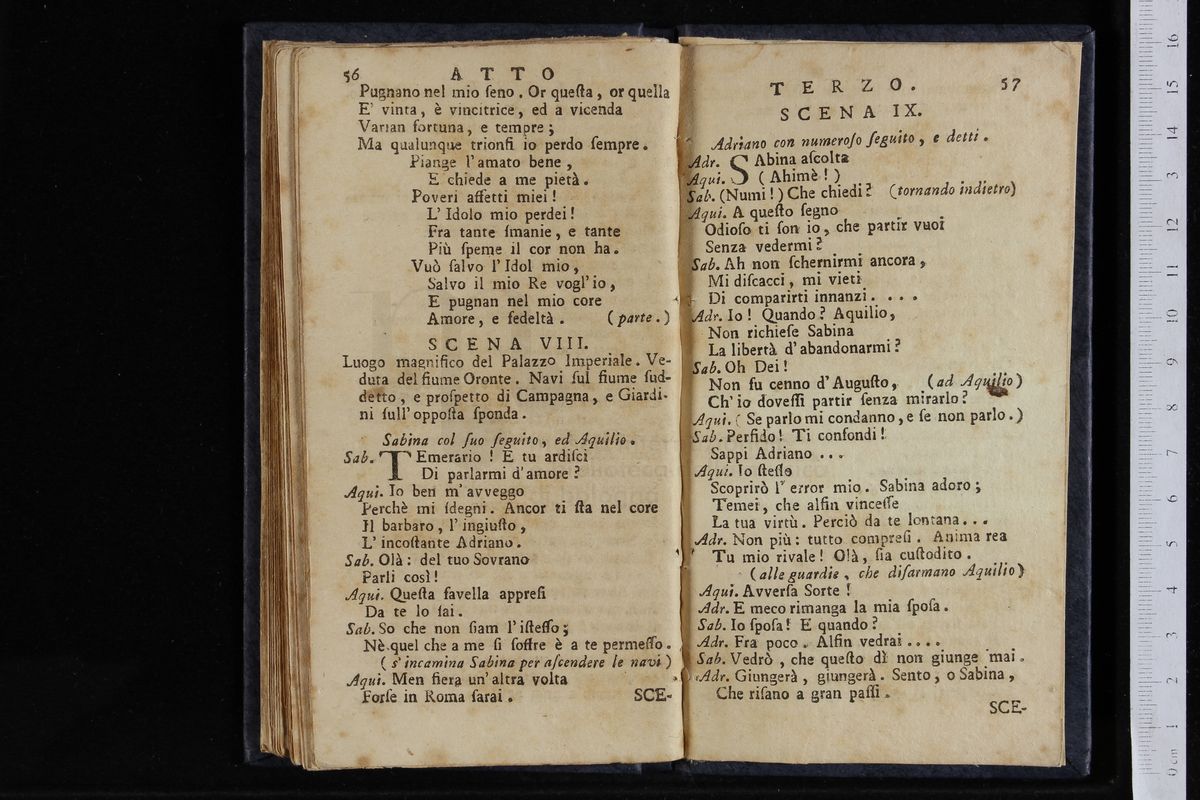 56 ATTO
Pugnano nel mio ſeno. Or queſta, or quella
E' vinta, è vincitrice, ed a vicenda
Varian fortuna, e tempre;
Ma qualunque trionfi io perdo ſempre.
Piange l'amato bene,
E chiede a me pietà.
Poveri affetti miei!
L'Idolo mio perdei!
Fra tante ſmanie, e tante
Più ſpeme il cor non ha.
Vuò ſalvo l'Idol mio,
Salvo il mio Re vogl'io,
E pugnan nel mio core
Amore, e fedeltà. (parte.)
SCENA VIII.
Luogo magnifico del Palazzo Imperiale. Ve-
duta del fiume Oronte. Navi ſul fiume ſud-
detto, e proſpetto di Campagna, e Giardi-
ni ſull'oppoſta ſponda.
Sabina col ſuo ſeguito, ed Aquilio.
Sab. TEmerario! E tu ardiſci
Di parlarmi d'amore?
Aqui. Io ben m'avveggo
Perchè mi ſdegni. Ancor ti ſta nel core
Il barbaro, l'ingiuſto,
L'incoſtante Adriano.
Sab. Olà: del tuo Sovrano
Parli così!
Aqui. Queſta favella appreſi
Da te lo ſai.
Sab. So che non ſiam l'iſteſſo;
Nè quel che a me ſi ſoffre è a te permeſſo.
(s'incamina Sabina per aſcendere le navi)
Aqui. Men fiera un'altra volta
Forſe in Roma ſarai. SCE-
TERZO. 57
SCENA IX.
Adriano con numeroſo ſeguito, e detti.
Adr. SAbina aſcolta
Aqui. (Ahimè!)
Sab. (Numi!) Che chiedi? (tornando indietro)
Aqui. A queſto ſegno
Odioſo ti ſon io, che partir vuoi
Senza vedermi?
Sab. Ah non ſchernirmi ancora,
Mi diſcacci, mi vieti
Di comparirti innanzi....
Adr. Io! Quando? Aquilio,
Non richieſe Sabina
La libertà d'abandonarmi?
Sab. Oh Dei!
Non fu cenno d'Auguſto, (ad Aquilio)
Ch'io doveſſi partir ſenza mirarlo?
Aqui. (Se parlo mi condanno, e ſe non parlo.)
Sab. Perfido! Ti confondi!
Sappi Adriano ...
Aqui. Io ſteſſo
Scoprirò l'error mio. Sabina adoro;
Temei, che alfin vinceſſe
La tua virtù. Perciò da te lontana...
Adr. Non più: tutto compreſi. Anima rea
Tu mio rivale! Olà, ſia cuſtodito.
(alle guardie, che diſarmano Aquilio)
Aqui. Avverſa Sorte!
Adr. E meco rimanga la mia ſpoſa.
Sab. Io ſpoſa! E quando?
Adr. Fra poco. Alfin vedrai....
Sab. Vedrò, che queſto dì non giunge mai.
Adr. Giungerà, giungerà. Sento, o Sabina,
Che riſano a gran paſſi.
SCE-
0 cm 1 2 3 4 5 6 7 8 9 10 11 12 13 14 15 16